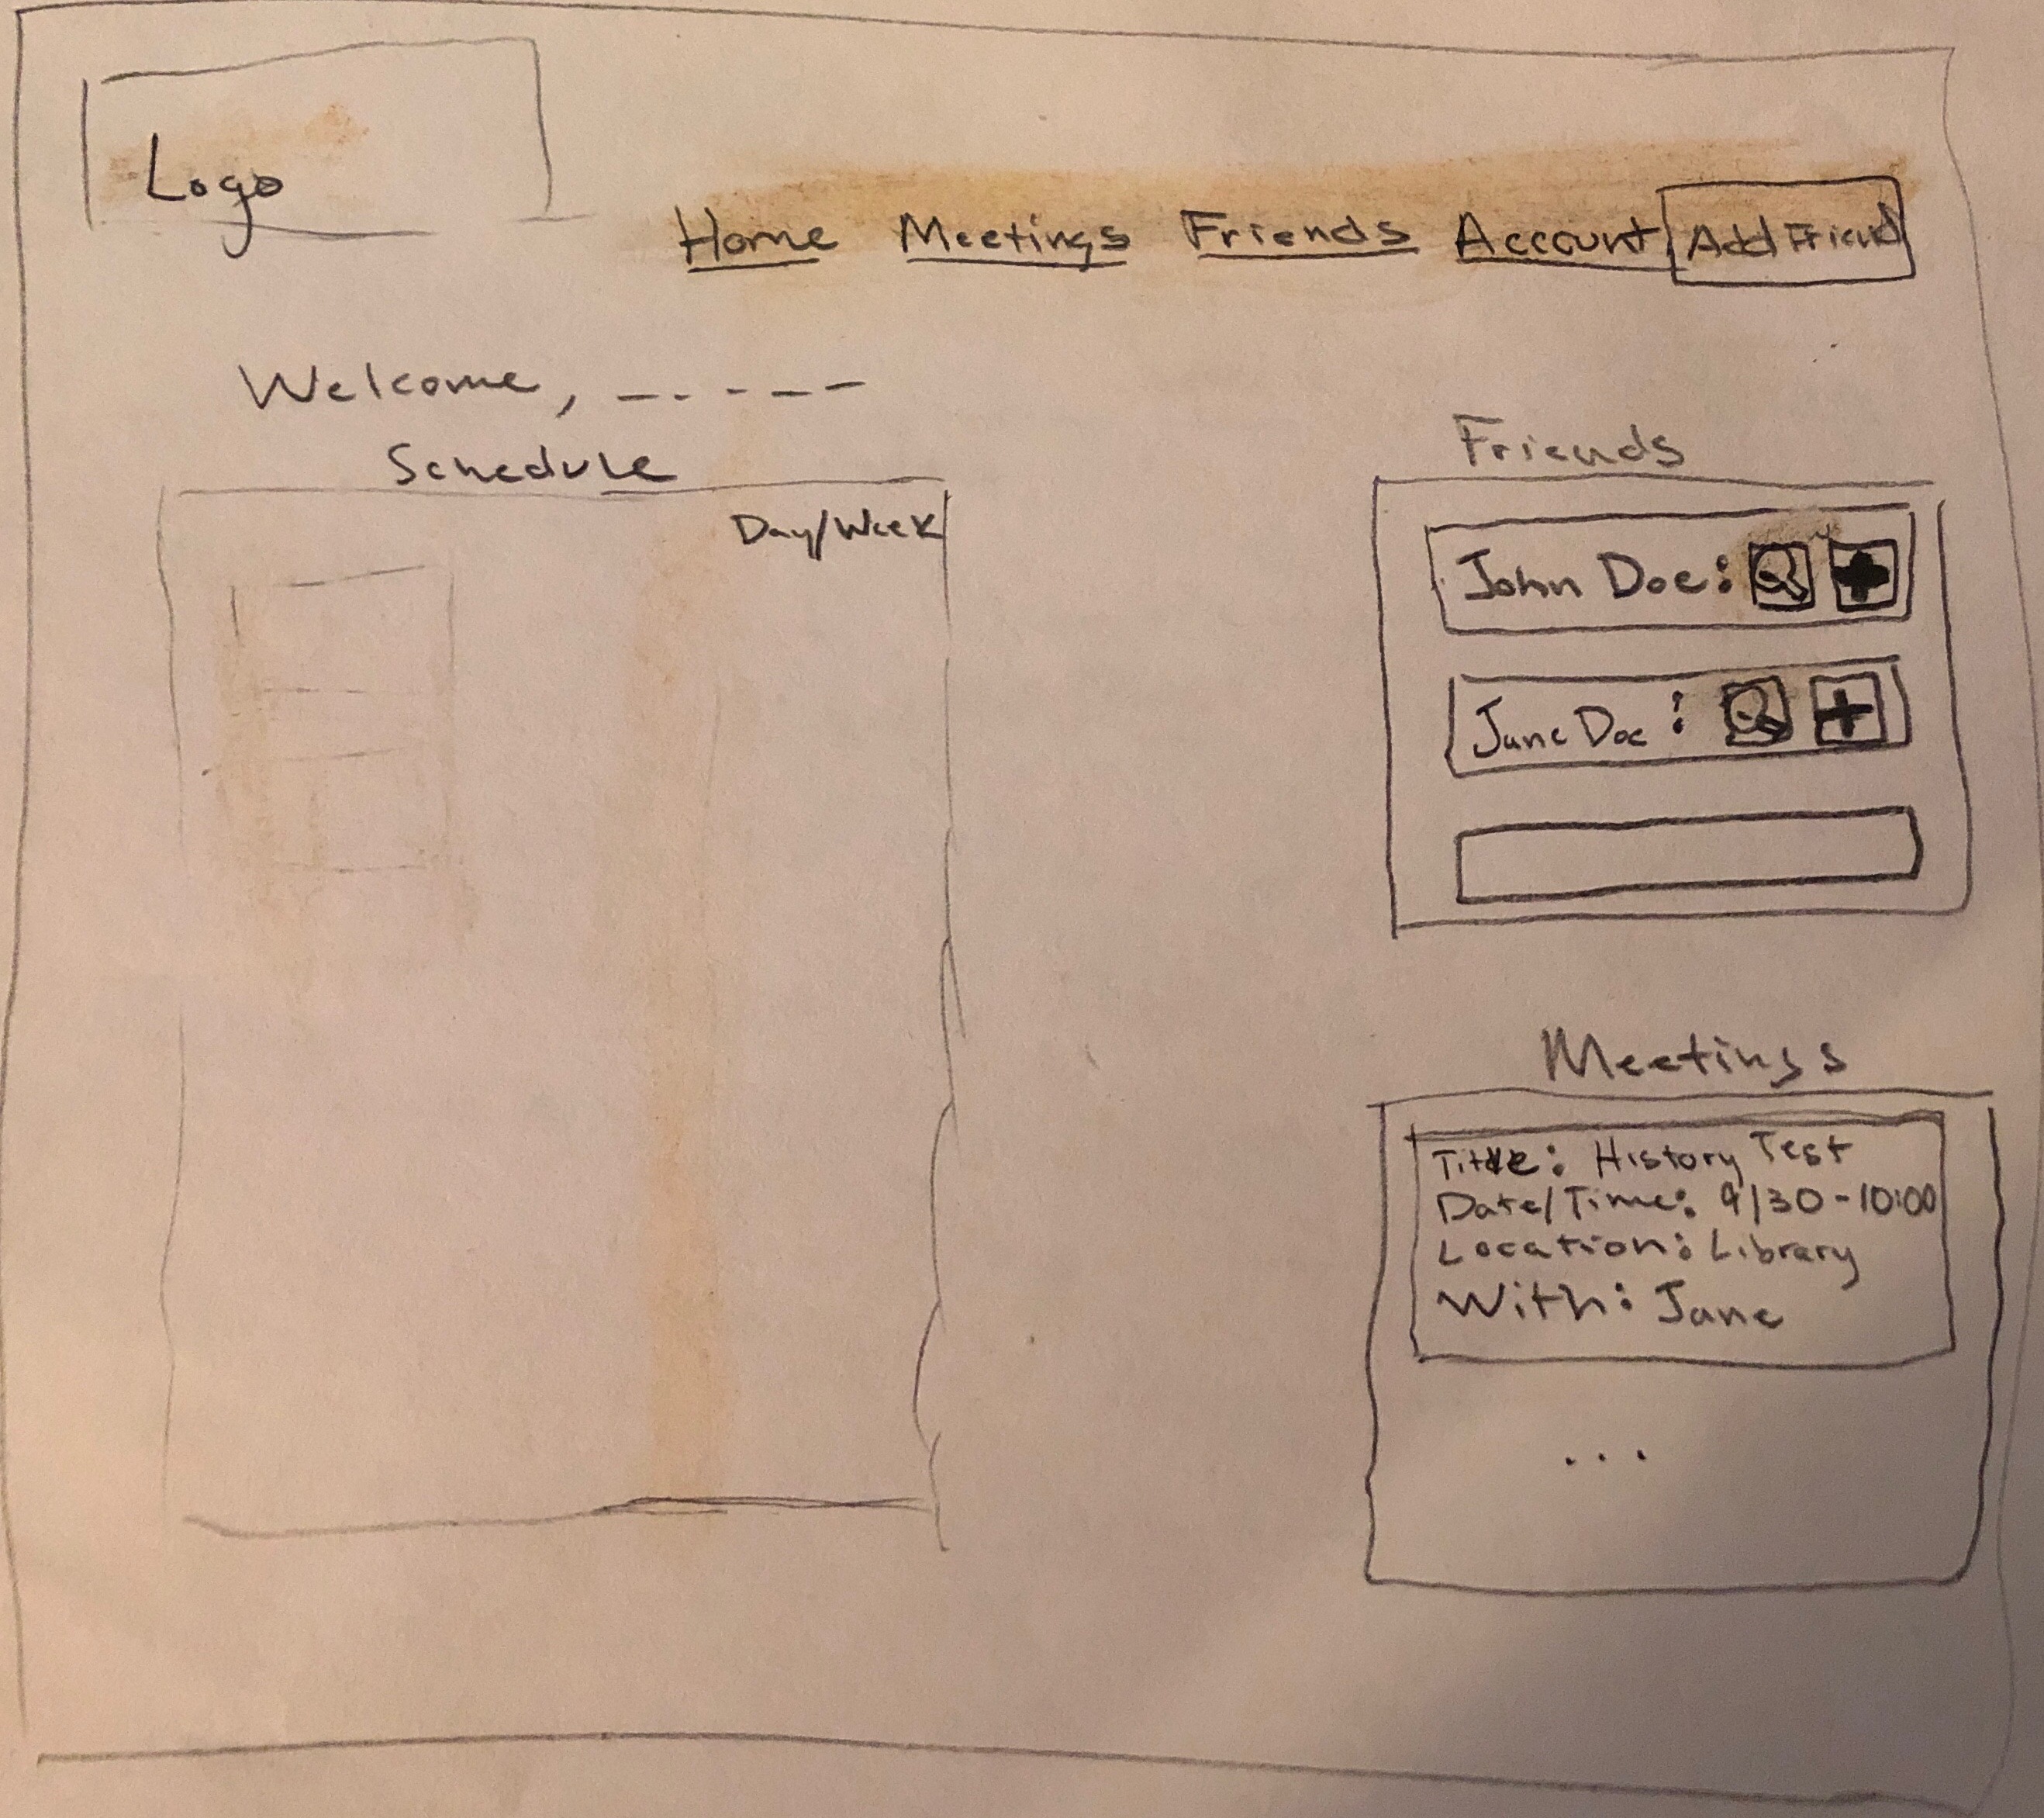 Logo
Home Meetings Friends Account Add Friend
Welcome, _ _ _ _ _
Schedule
Day/Week
Friends
John Doe:
Jane Doe:
Meetings
Title: History Test
Date/Time: 9/30-10:00
Location: Library
With: Jane
...